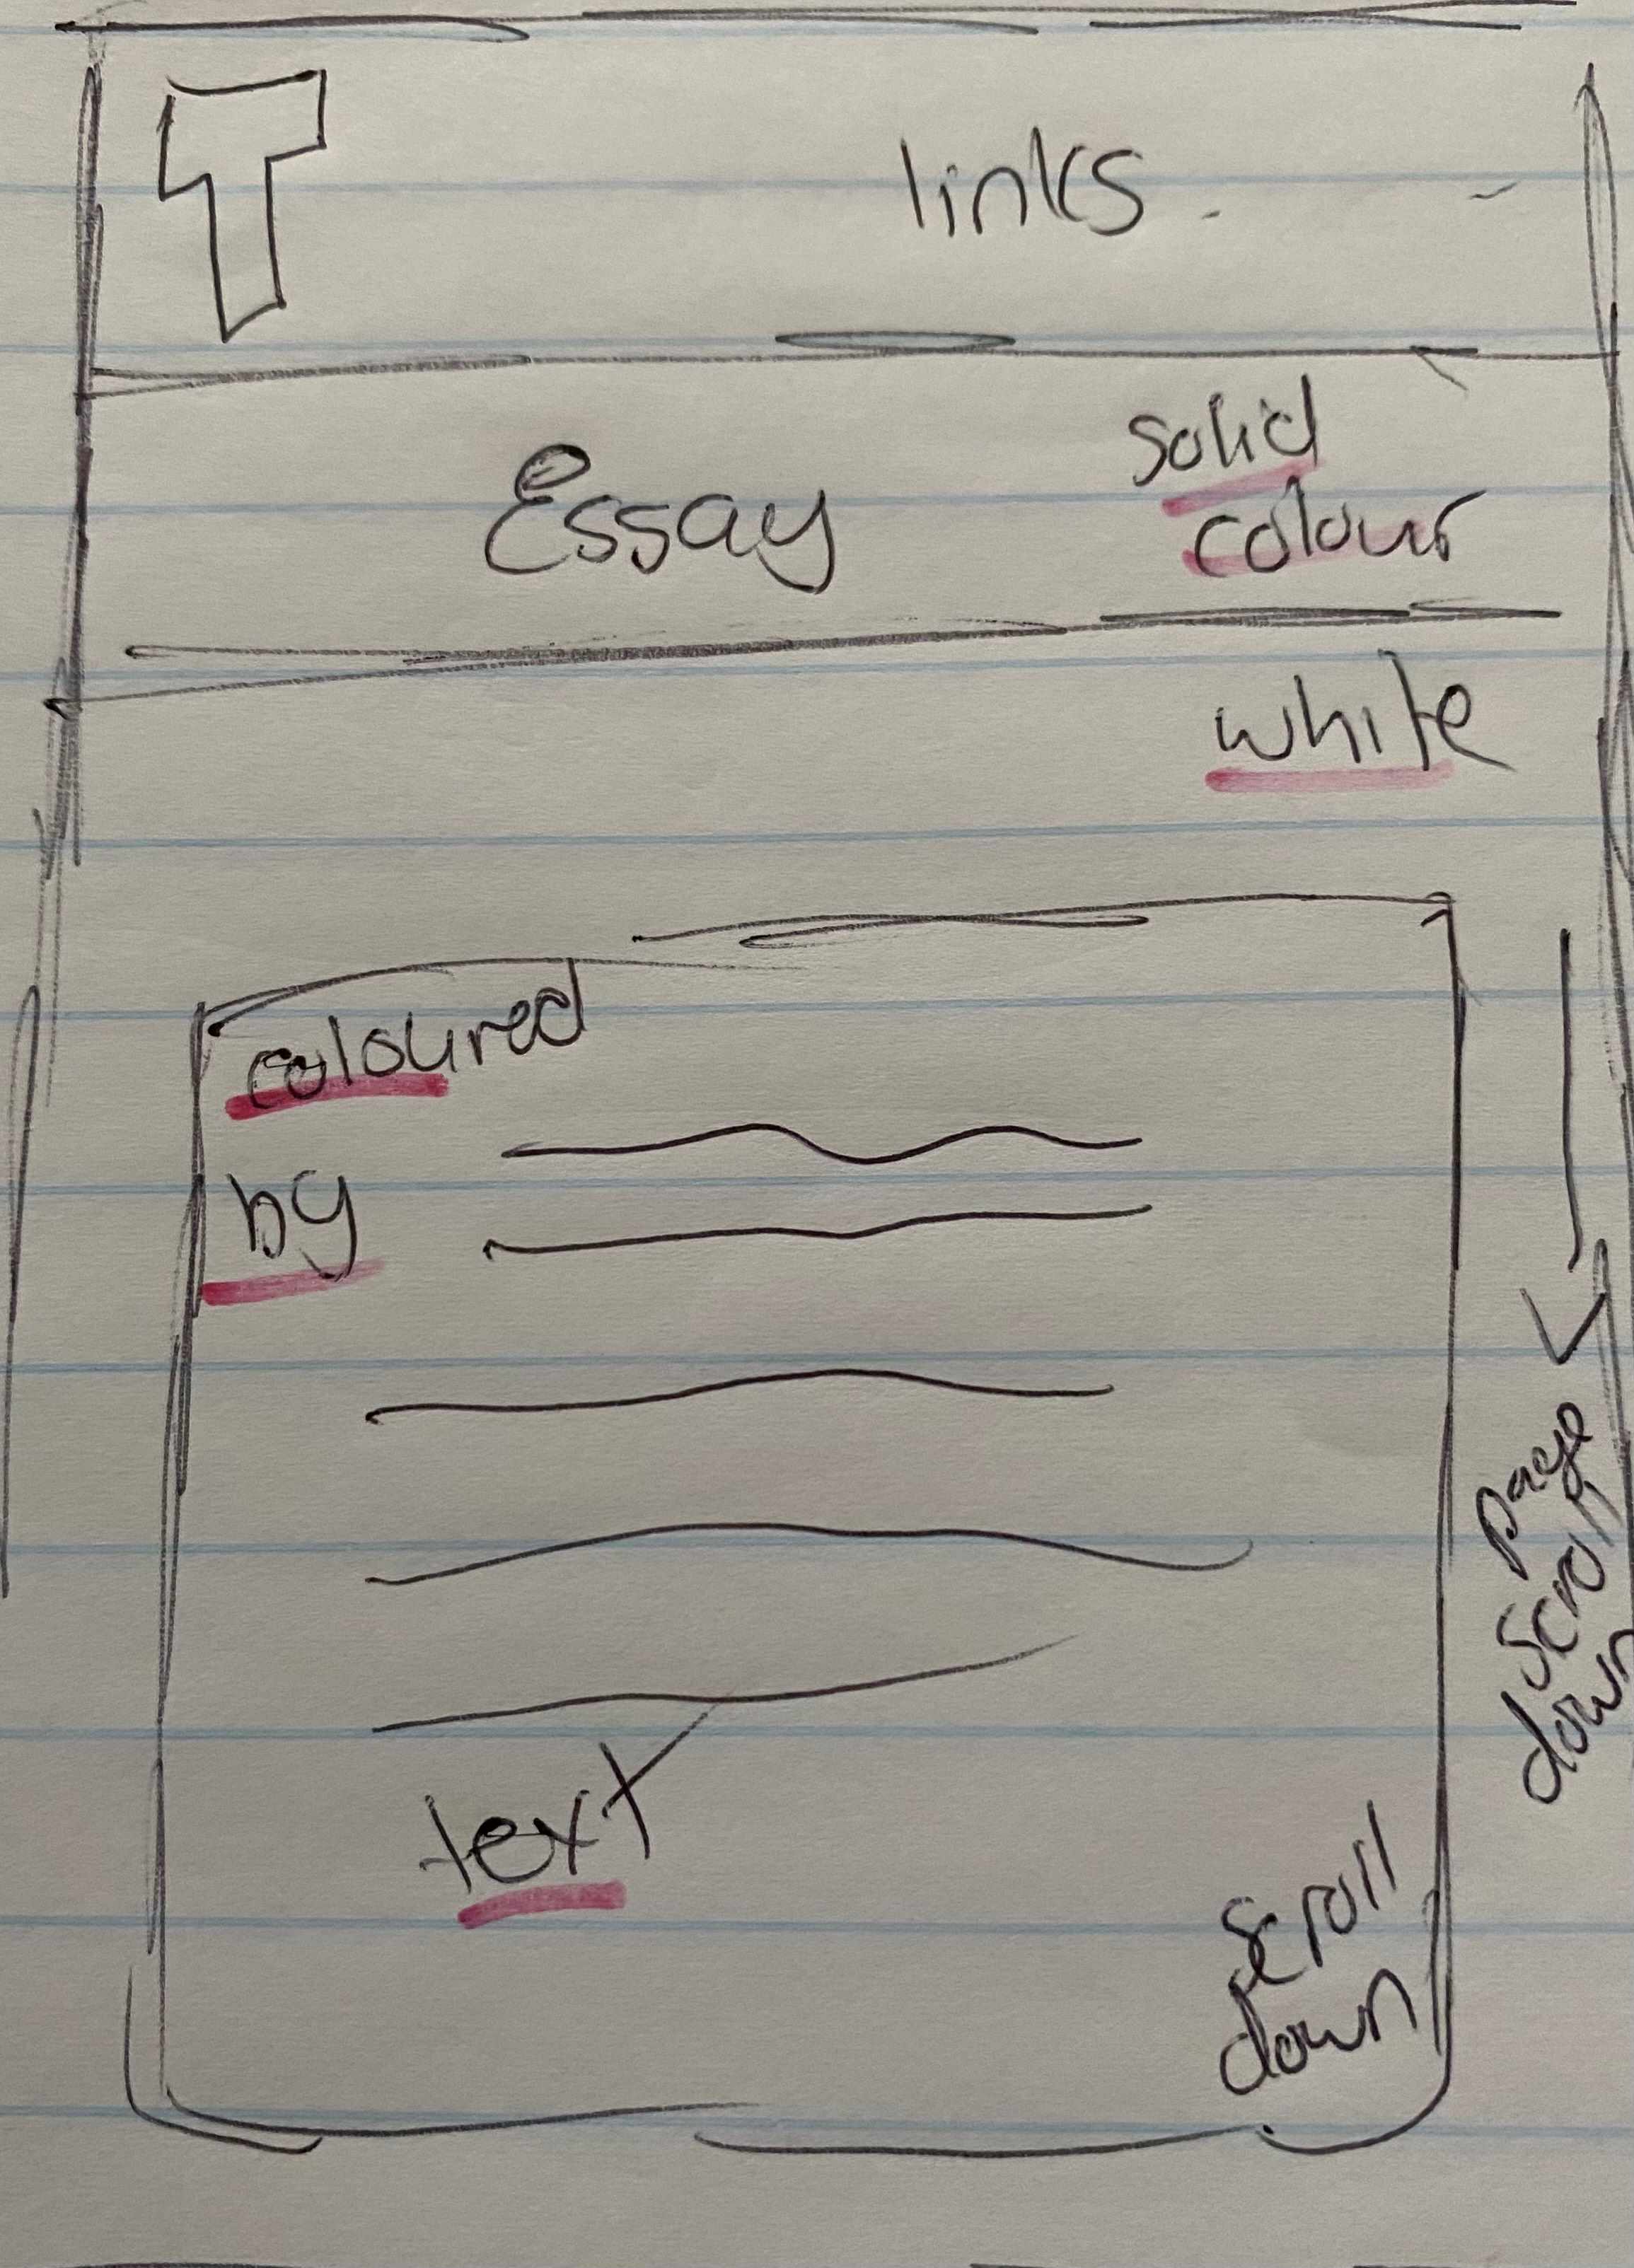 T
links
Essay
solid
colour
white
coloured
by
text
page
scroll
down
scroll
down